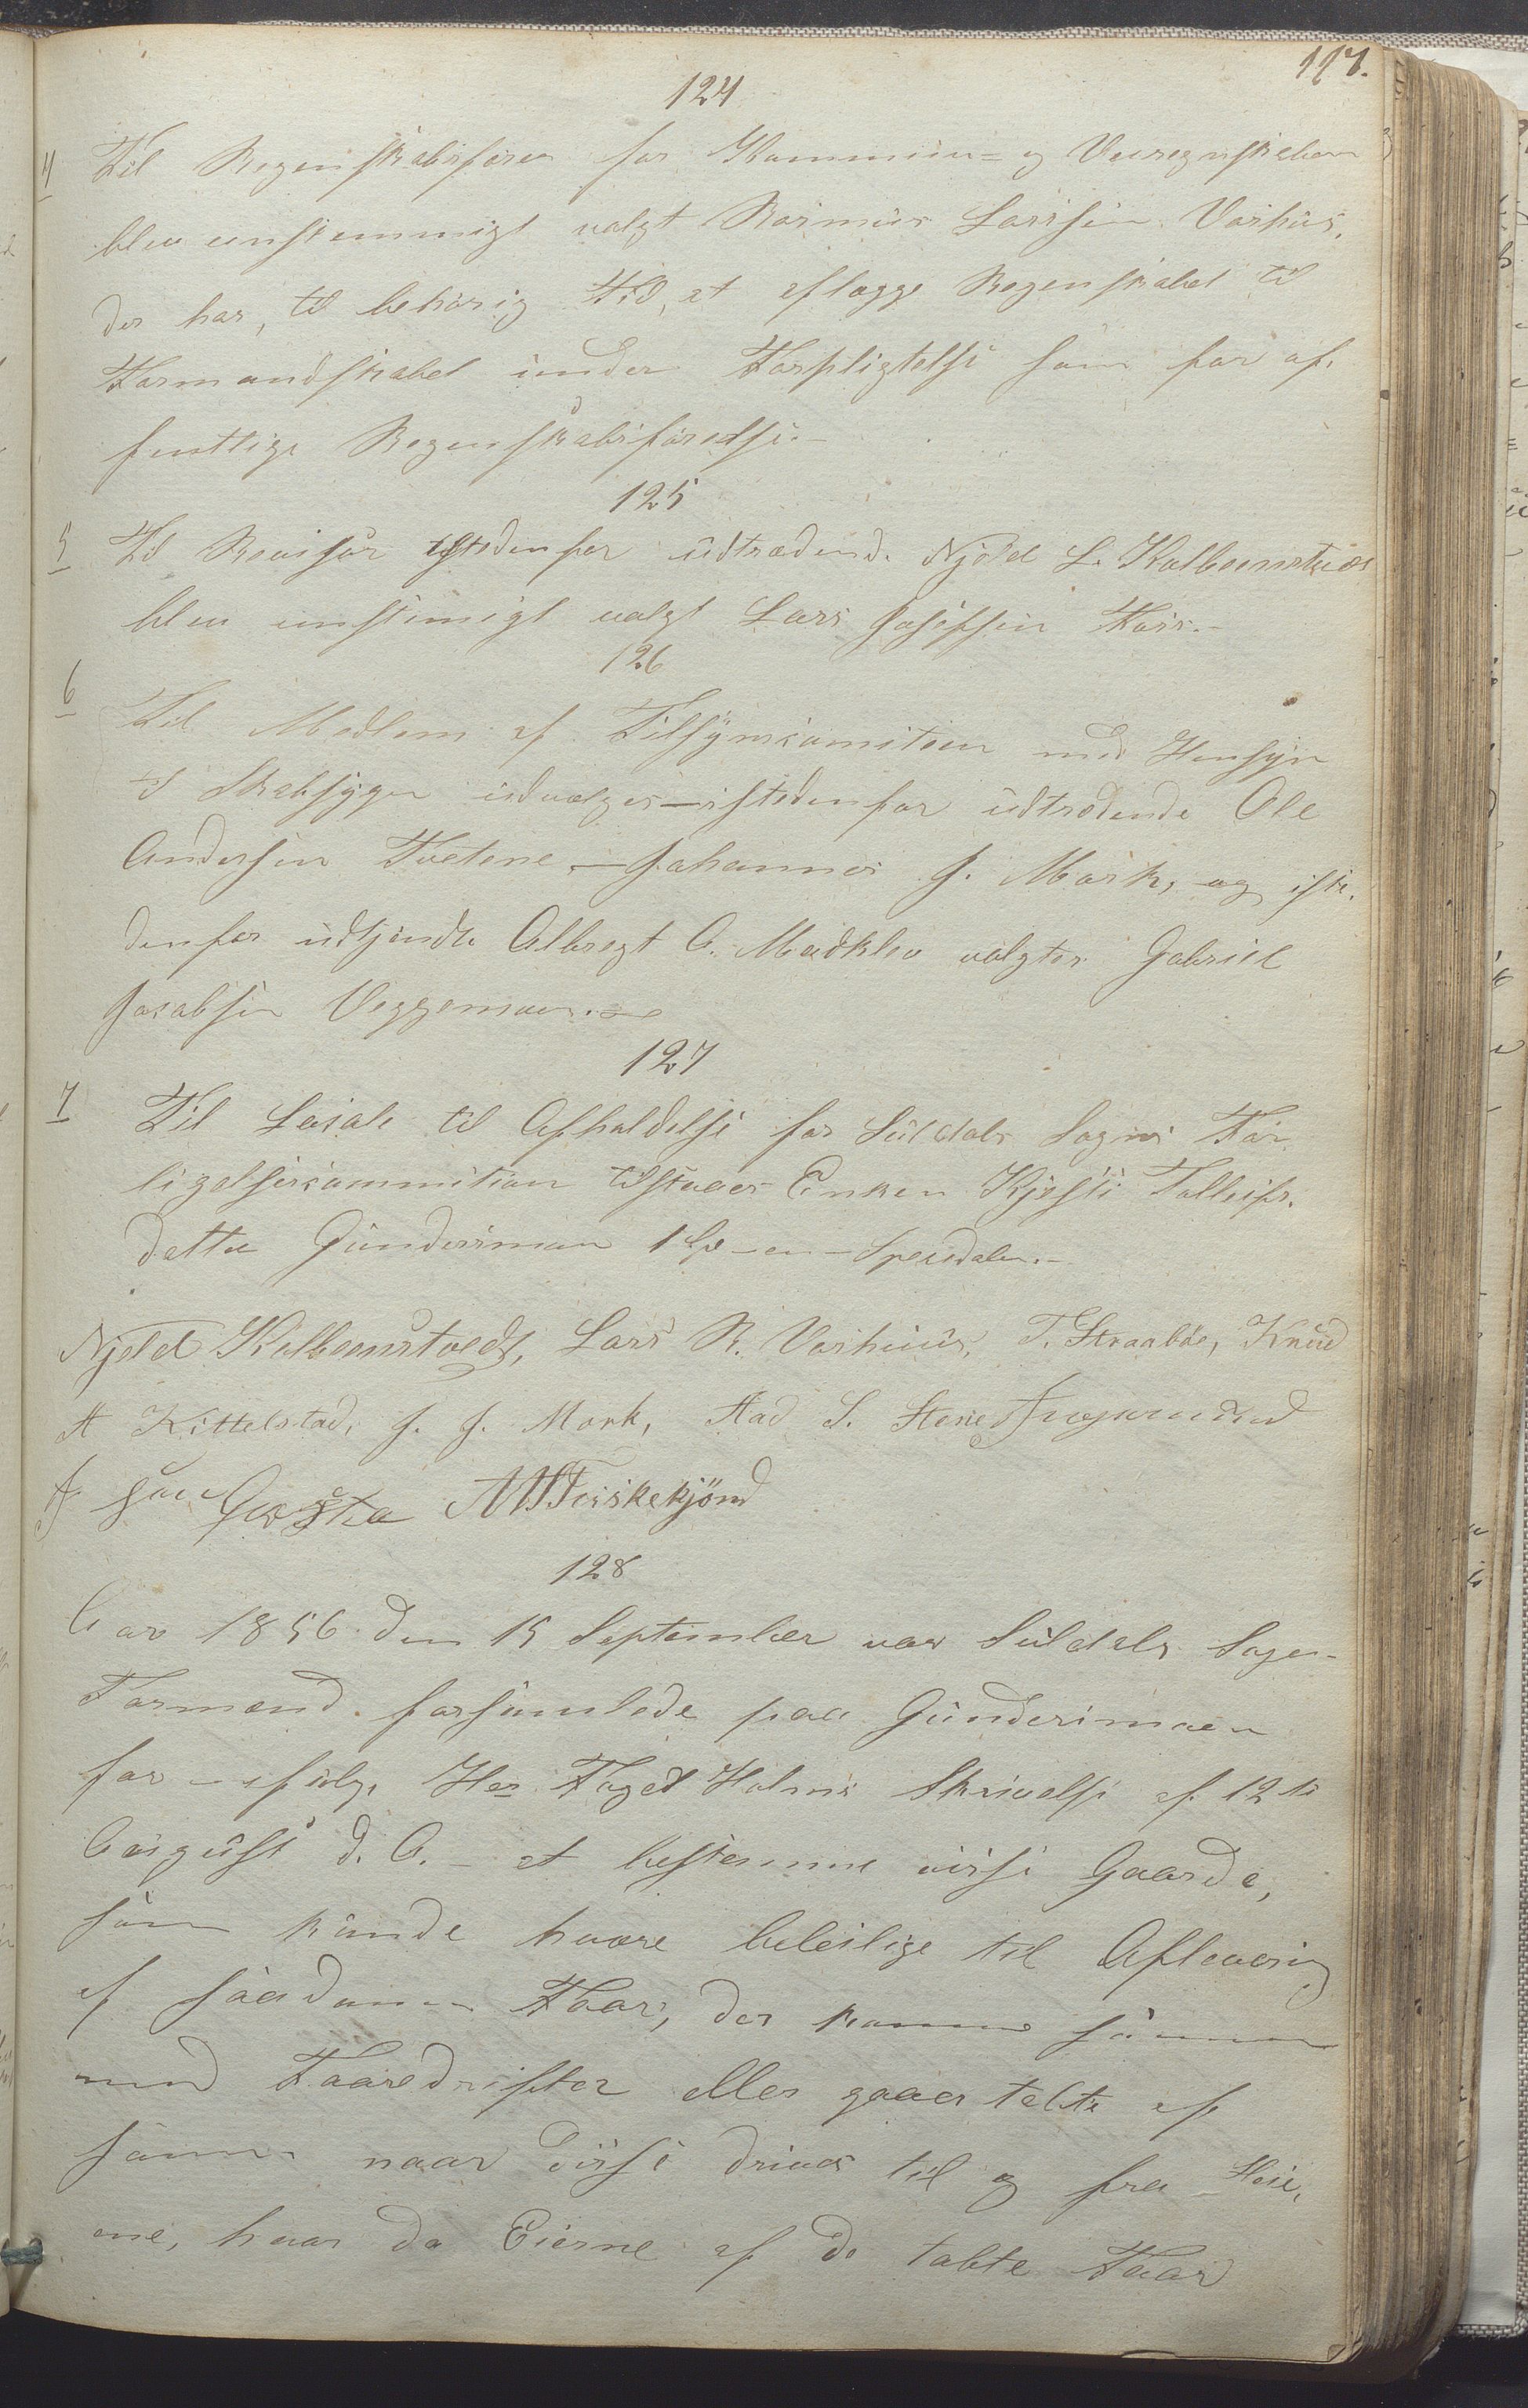 117.
124
4 Til Regenskabsförer for Kommun= og Veiregnskaben
blev eenstemmigt valgt Rasmus Larsen Vashus,
der har, til behörig Tid, at aflægge Regenskabet til
Formandskabet under Forpligtelse som for of-
fentlige Regenskabsförelse.-
125
5 Til Revisor istedenfor udtrædende Njeld L. Kolbeenstvedt
blev eenstemigt valgt Lars Josefsen Foss.-
126
6 Til Medlem af Tilsynscomiteen med Hensyn
til Skabsygen udvælges - istedenfor udtrædende Ole
Andersen Tvetene - Johannes J. Mork, og iste-
denfor udtjendte Albregt A. Maaklev valgtes Gabriel
Jacobsen Veggemoen.-
127
7 Til Locale til Afholdelse for Suldals Sogns For-
ligelsescommition tilstaaes Enken Kjesti Tolleifs-
datter Gunderimoen 1 Sp - en - Speciedaler.-
Njeld Kolbeenstvedt, Lars R. Vashuus, T. Straaböe, Knud
A Kittelstad, J. J. Mork, Aad S. Stene
Garstea
128
Aar 1856 den 15 September var Suldals Sogns
Formænd forsamlede paa Gunderimoen
for - ifölge Her Foged Holms Skrivelse af 12te
August d. A. - at bestemme visse Gaarde,
som kunde være beleilige til Aflevering
af saadanne Faar, der komme sammen
med Faaredrifter eller gaaer tabte af
samme naar disse drives til og fra Heie-
ne, hvor da Eierne af de tabte Faar